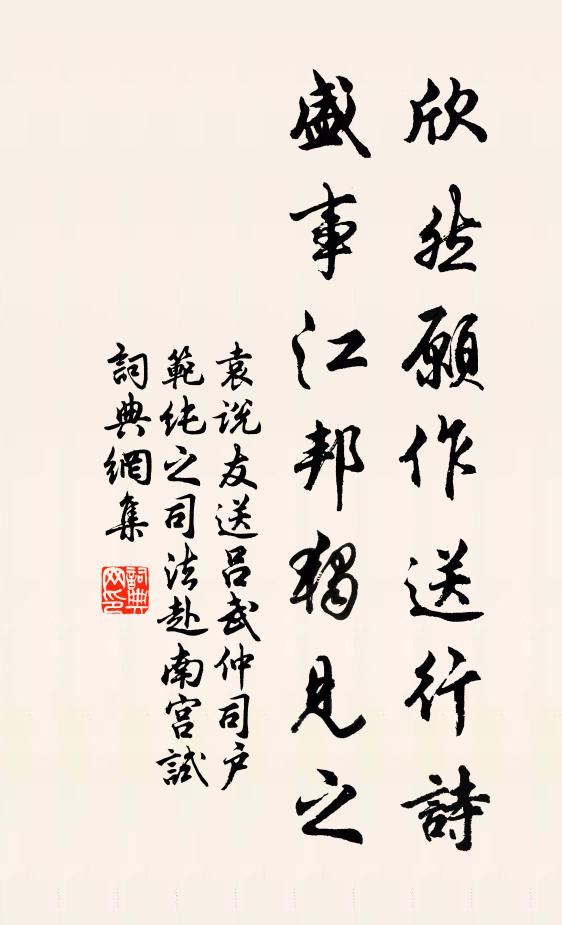 欣然願作送行詩
盛事江邦獨見之
袁说友送吕武仲司户
範纯之司法赴南宫試
詞典網集
詞典网印